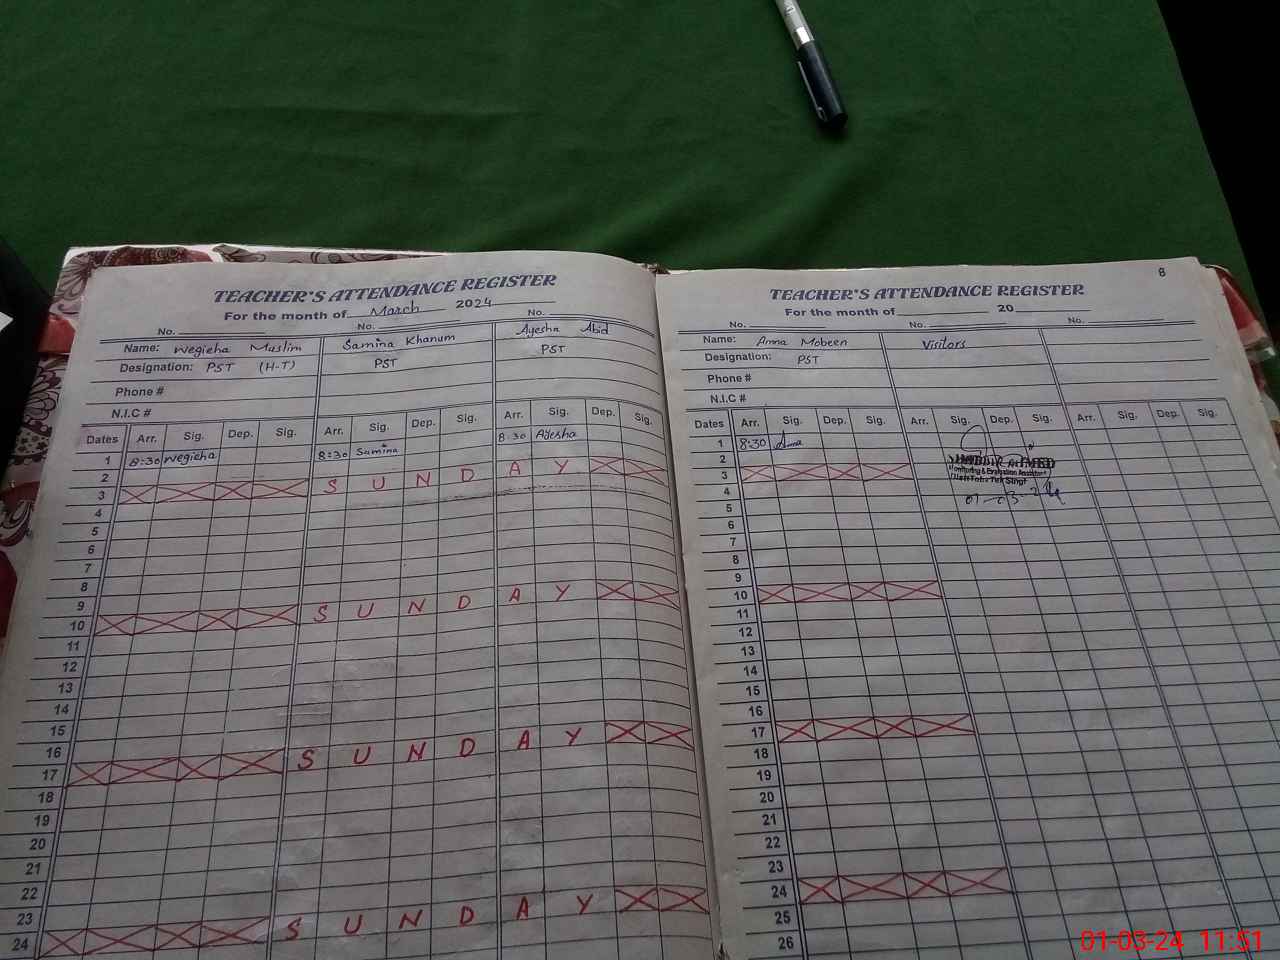 TEACHER'S ATTENDANCE REGISTER
For the month of March 2024
No. No. No.
Name: Wegieha Muslim Samina Khanum Ayesha Abid
Designation: PST (H-T) PST PST
Phone #
N.I.C #
Dates Arr. Sig. Dep. Sig. Arr. Sig. Dep. Sig. Arr. Sig. Dep. Sig.
1 8:30 Wegieha 8:30 Samina 8:30 Ayesha
2
3 S U N D A Y
4
5
6
7
8
9
10 S U N D A Y
11
12
13
14
15
16
17 S U N D A Y
18
19
20
21
22
23
24 S U N D A Y
8
TEACHER'S ATTENDANCE REGISTER
For the month of 20
No. No. No.
Name: Amna Mobeen Visitors
Designation: PST
Phone #
N.I.C #
Dates Arr. Sig. Dep. Sig. Arr. Sig. Dep. Sig. Arr. Sig. Dep. Sig.
1 8:30 Amna
2
3
4
5
6
7
8
9
10
11
12
13
14
15
16
17
18
19
20
21
22
23
24
25
26
Monitoring & Evaluation Assistant
01-03-24
01-03-24 11:51